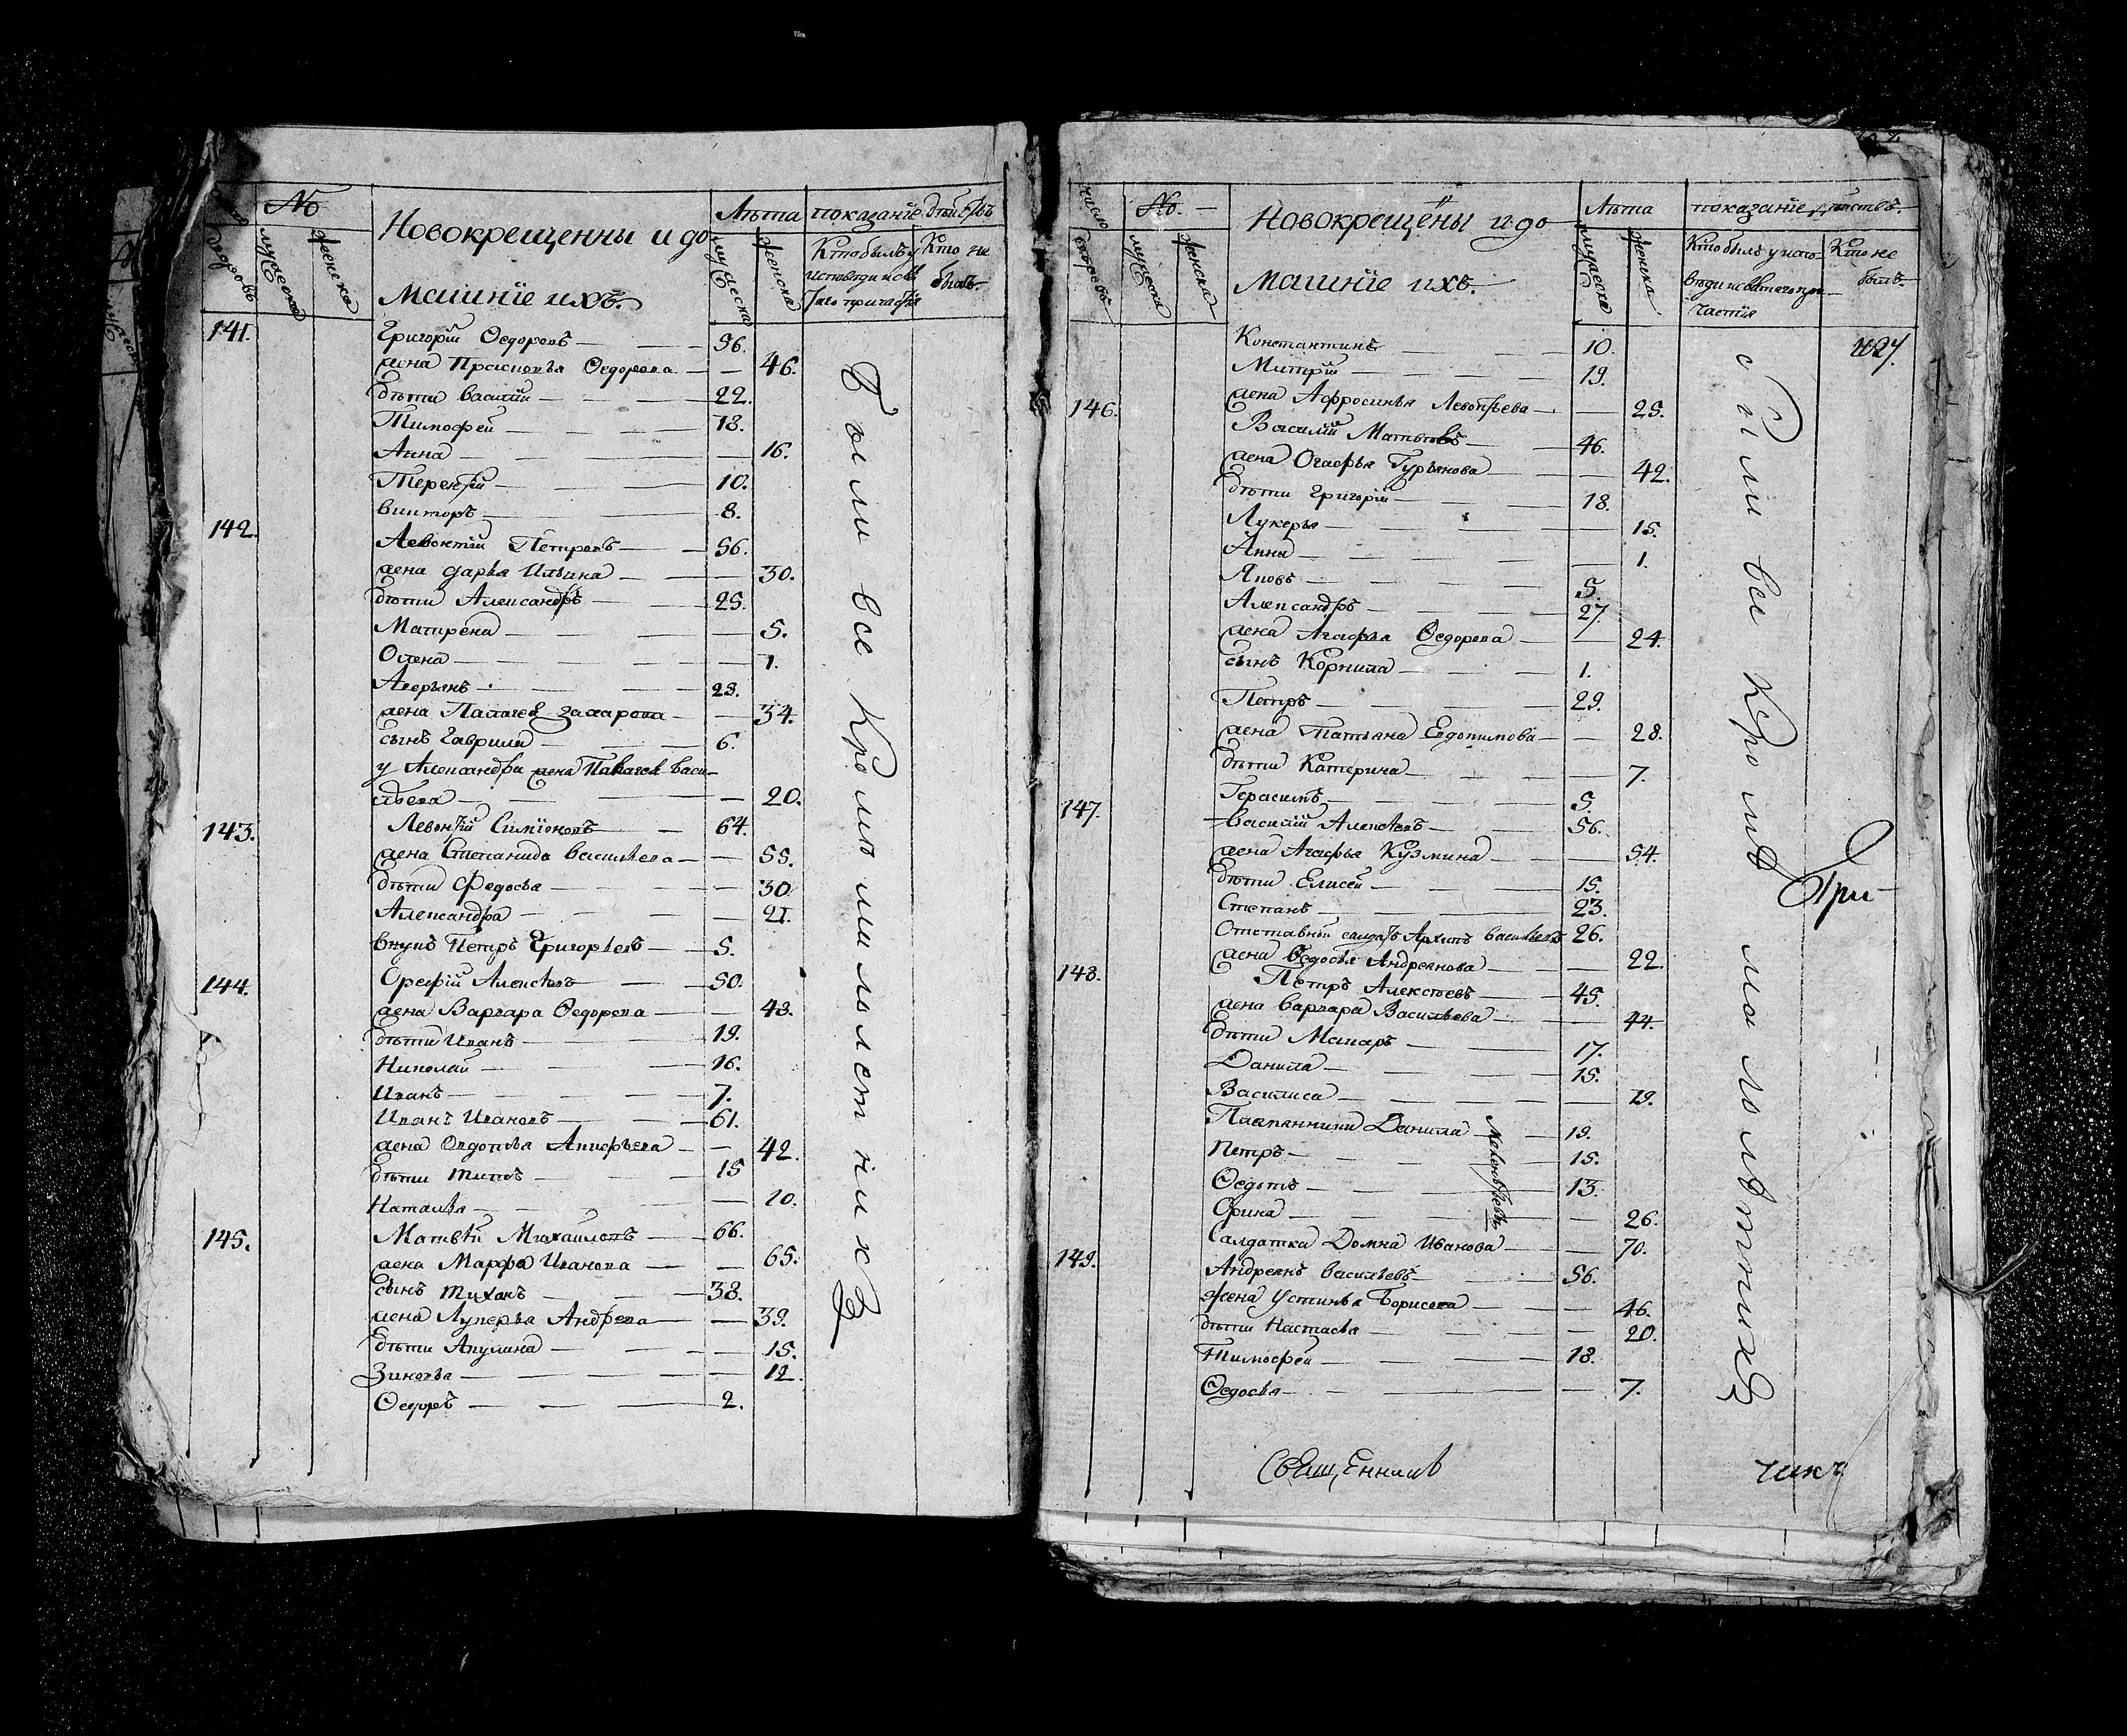 №
Новокрещенны и до
машнїе ихъ.
Лѣта
показанїе дѣйствъ
дворовъ
мужеска
женска
мужеска
женска
Кто былъ у
исповѣди и свя
таго причастїя
Кто не
былъ
141. Григорїй Ѳедоровъ 56.
жена Прасковья Ѳедорова 46.
дѣти Василїй 22.
Тимофей 18.
Анна 16.
Терентїй 10.
Викторъ 8.
142. Левонтїй Петровъ 56.
жена дарья Ильина 30.
дѣти Александръ 25.
Матрена 5.
Олена 1.
Аверьянъ 28.
жена Палагея Захарова 34.
сынъ Гаврила 6.
у Александра жена Палагея Васи
льева 20.
143. Левонтїй Симїоновъ 64.
жена Степанида Васильева 55.
дѣти Федосья 30
Александра 21.
внукъ Петръ Григорьевъ 5.
144. Орефїй Алексѣевъ 50.
жена Варвара Ѳедорова 48.
дѣти Иванъ 19.
Николай 16.
Иванъ 7.
Иванъ Ивановъ 61.
жена Овдотья 42.
дѣти Титъ 15
Наталья 10.
145. Матвѣй Михайловъ 66.
жена Марфа Иванова 65.
сынъ Тихонъ 38.
жена Лукерья Андреева 39.
дѣти Акулина 15.
Зиновья 12.
Ѳедоръ 2.
Были все Кроме малолетнихъ
число
дворовъ
№.
мужеска
женска
Новокрещёны и до
машнїе ихъ.
Лѣта
мужеска
женска
показанїе дѣйствъ.
Кто былъ у испо
вѣди и святаго при
частїя
Кто не
былъ.
Константинъ 10.
Митрїй 19.
жена Афросинья Левонтьева 25.
146. Василїй Матвѣевъ 46.
жена Огафья Гурьянова 42.
дѣти Григорїй 18.
Лукерья 15.
Анна 1.
Яковъ 5.
Александръ 27.
жена Агафья Ѳедорова 24.
сынъ Корнила 1.
Петръ 29.
жена Татьяна Евдокимова 28.
дѣти Катерина 7.
Герасимъ 5.
147. Василїй Алексѣевъ 56.
жена Агафья Кузмина 54.
дѣти Елисей 15.
Степанъ 23.
Отставной салдатъ Архипъ Васильевъ 26.
жена Ѳедосья Андреянова 22.
148. Петръ Алексѣевъ 45.
жена Варвара Васильева 44.
дѣти Макаръ 17.
Данила 15.
Василиса 19.
Племянники Данила 19.
Петръ 15.
Ѳедотъ 13.
Орина 26.
салдатка Домна Иванова 70.
149. Андреянъ Васильевъ 56.
жена Устинья Борисова 46.
дѣти Настасья 20.
Тимофей 18.
Ѳедосья 7.
Были все Кроме малолетнихъ
Гри
Священникъ